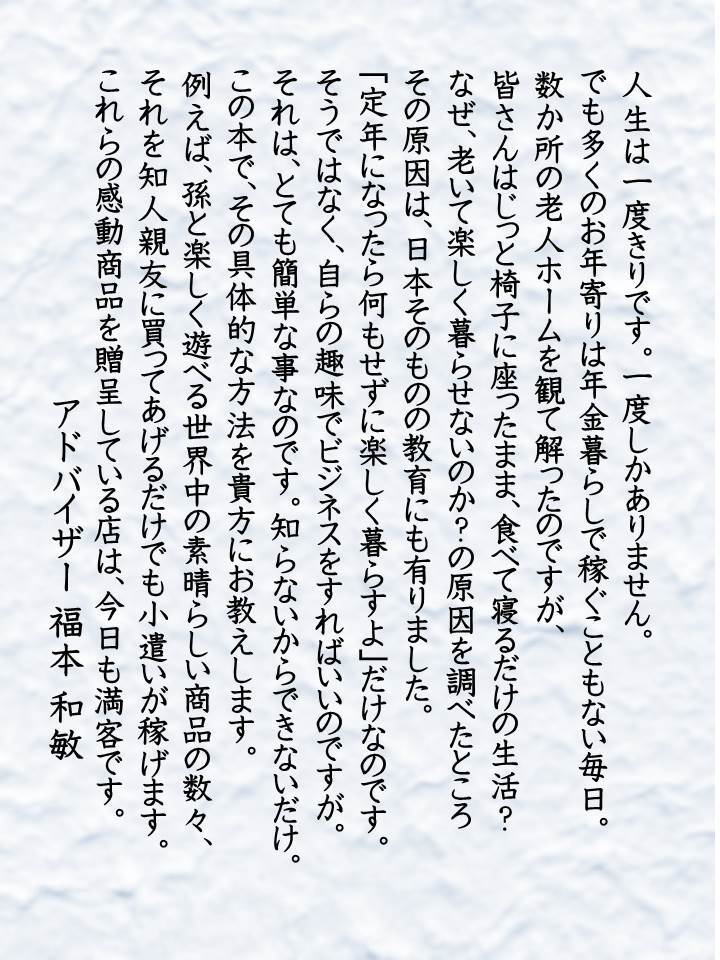 人生は一度きりです。一度しかありません。
でも多くのお年寄りは年金暮らしで稼ぐこともない毎日。
数か所の老人ホームを観て解ったのですが、
皆さんはじっと椅子に座ったまま、食べて寝るだけの生活？
なぜ、老いて楽しく暮らせないのか？の原因を調べたところ
その原因は、日本そのものの教育にも有りました。
「定年になったら何もせずに楽しく暮らすよ」だけなのです。
そうではなく、自らの趣味でビジネスをすればいいのですが。
それは、とても簡単な事なのです。知らないからできないだけ。
この本で、その具体的な方法を貴方にお教えします。
例えば、孫と楽しく遊べる世界中の素晴らしい商品の数々、
それを知人親友に買ってあげるだけでも小遣いが稼げます。
これらの感動商品を贈呈している店は、今日も満客です。
アドバイザー 福本 和敏